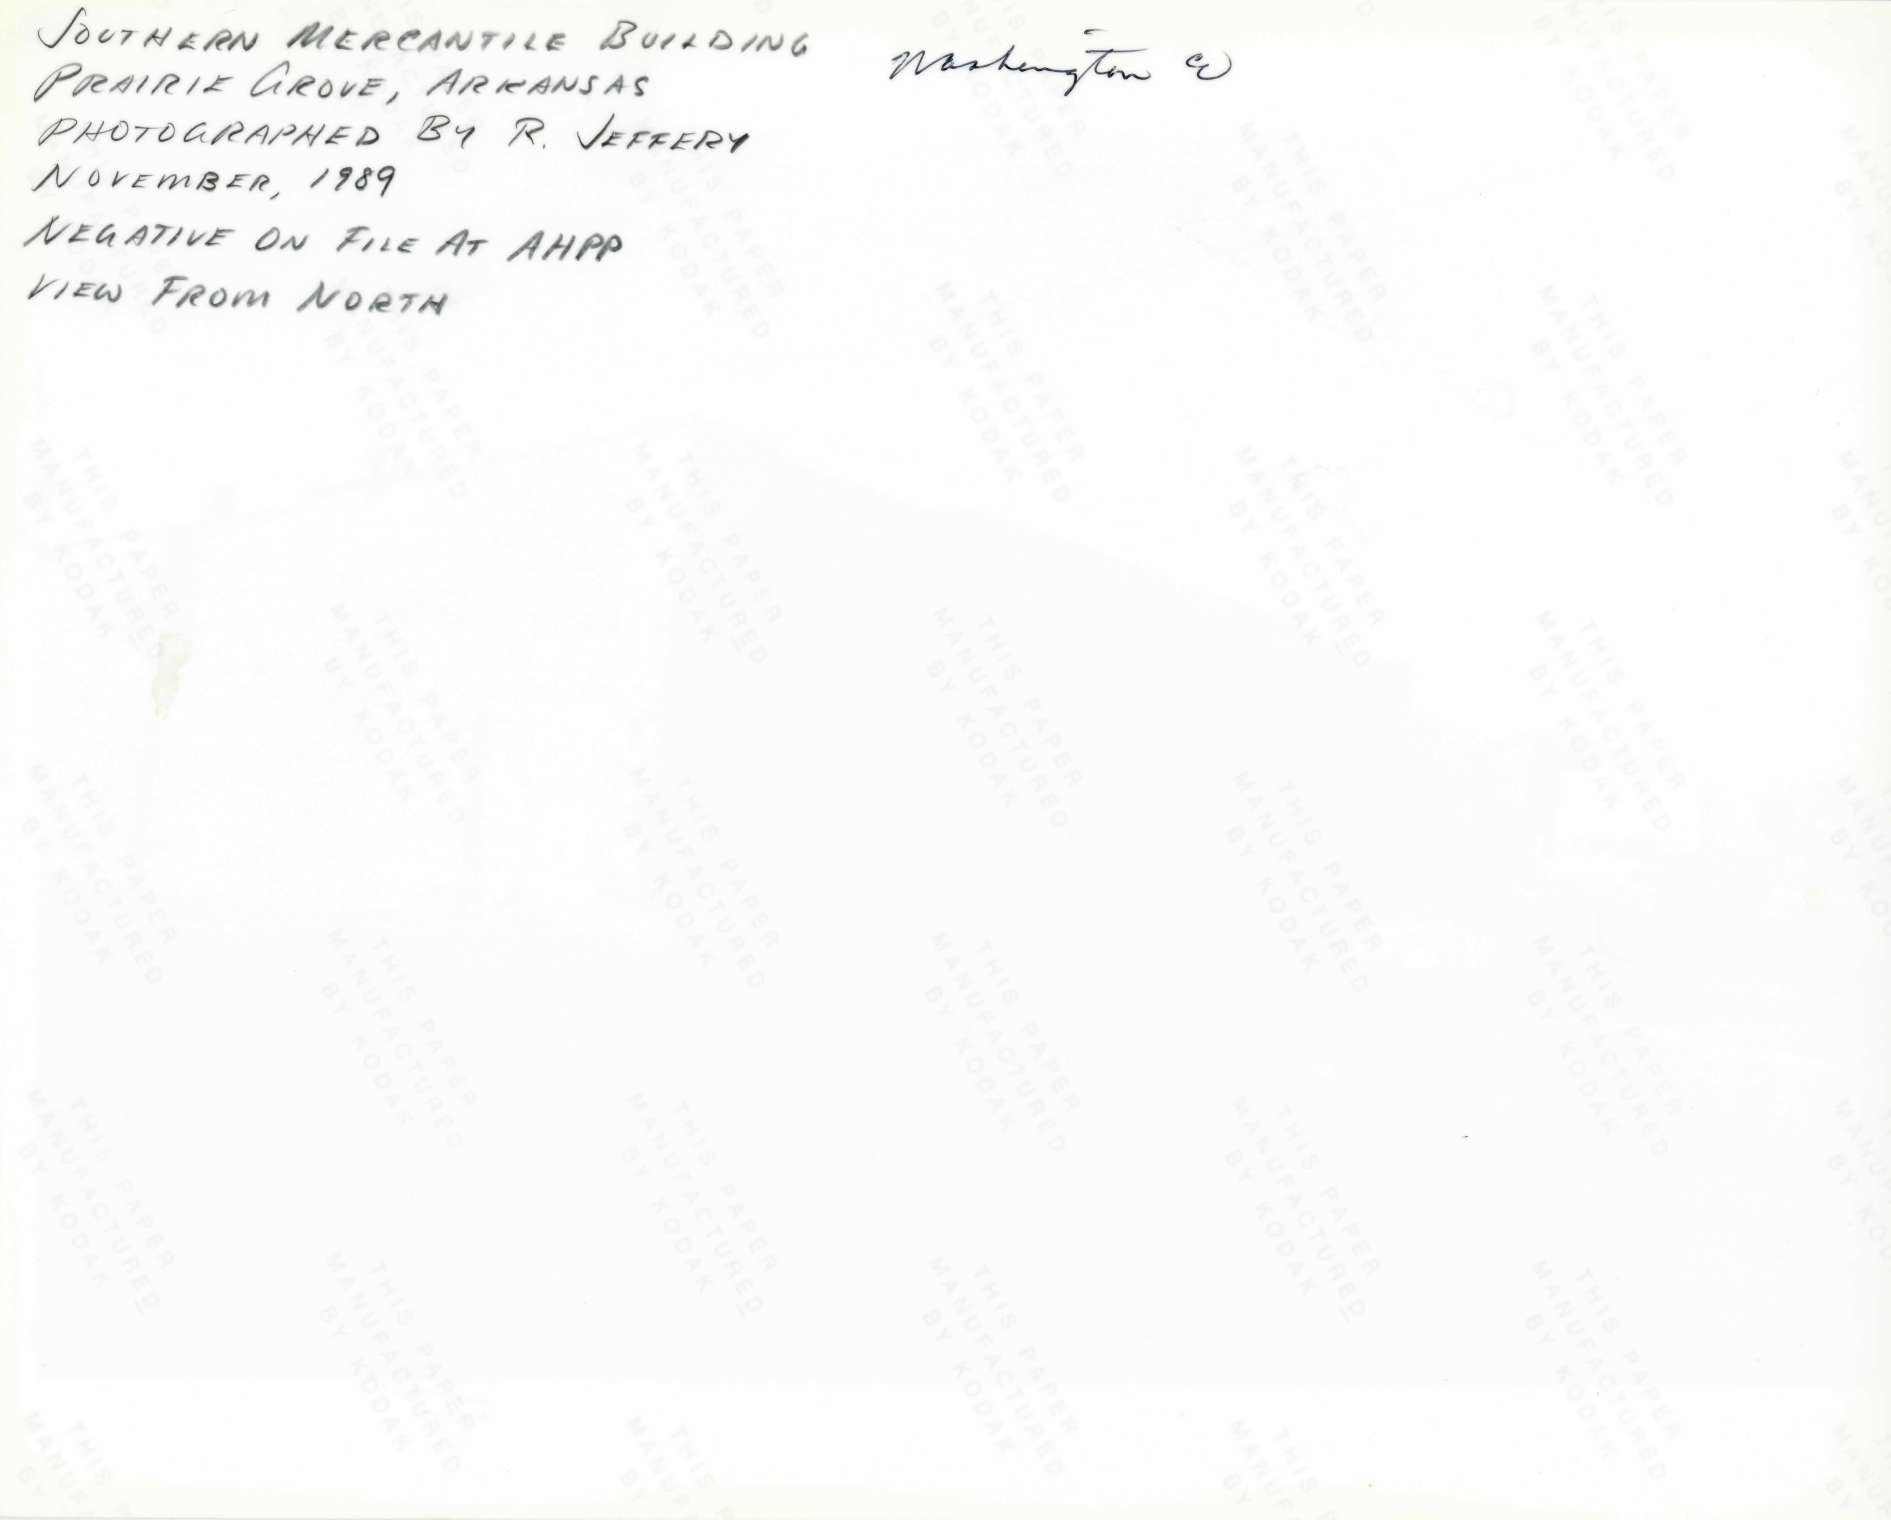 SOUTHERN MERCANTILE BUILDING
PRAIRIE GROVE, ARKANSAS
PHOTOGRAPHED BY R. JEFFERY
NOVEMBER, 1989
NEGATIVE ON FILE AT AHPP
VIEW FROM NORTH
Washington Co
THIS PAPER
MANUFACTURED
BY KODAK